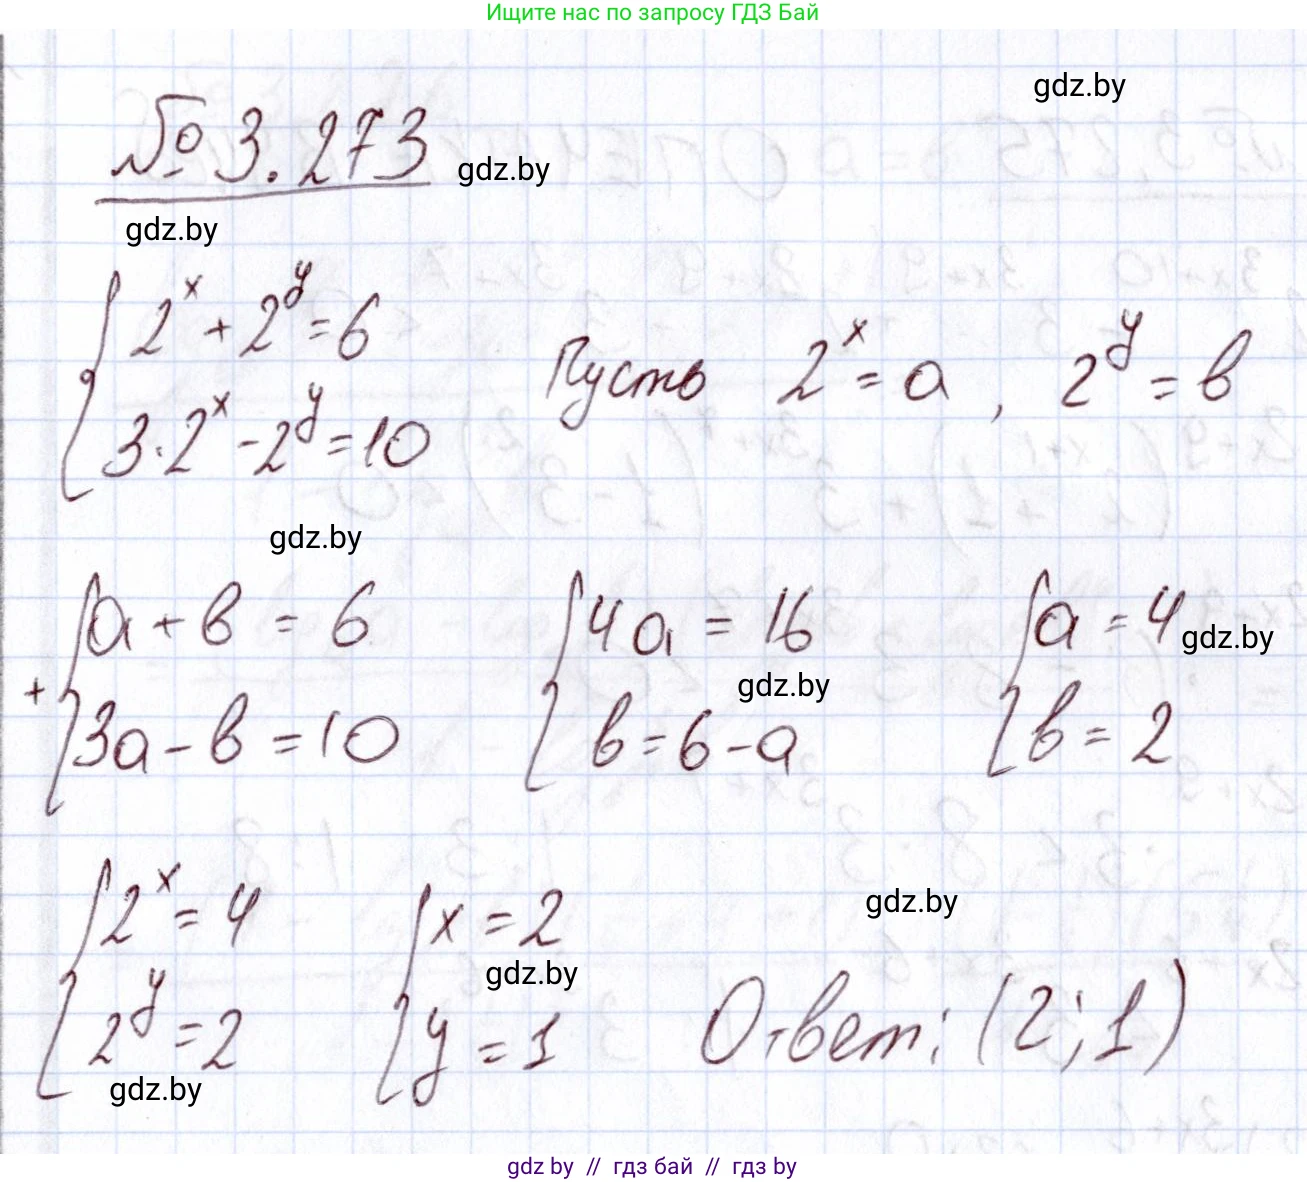 Ищите нас по запросу ГДЗ Бай
gdz.by
№ 3.273 gdz.by
gdz.by
{ 2^x + 2^y = 6
3·2^x - 2^y = 10
Пусть 2^x = a, 2^y = b
gdz.by
+ { a + b = 6
3a - b = 10
{ 4a = 16
gdz.by
b = 6 - a
{ a = 4
gdz.by
b = 2
{ 2^x = 4
2^y = 2
gdz.by
{ x = 2
gdz.by
y = 1
gdz.by
Ответ: (2; 1)
gdz by // гдз бай // гдз by